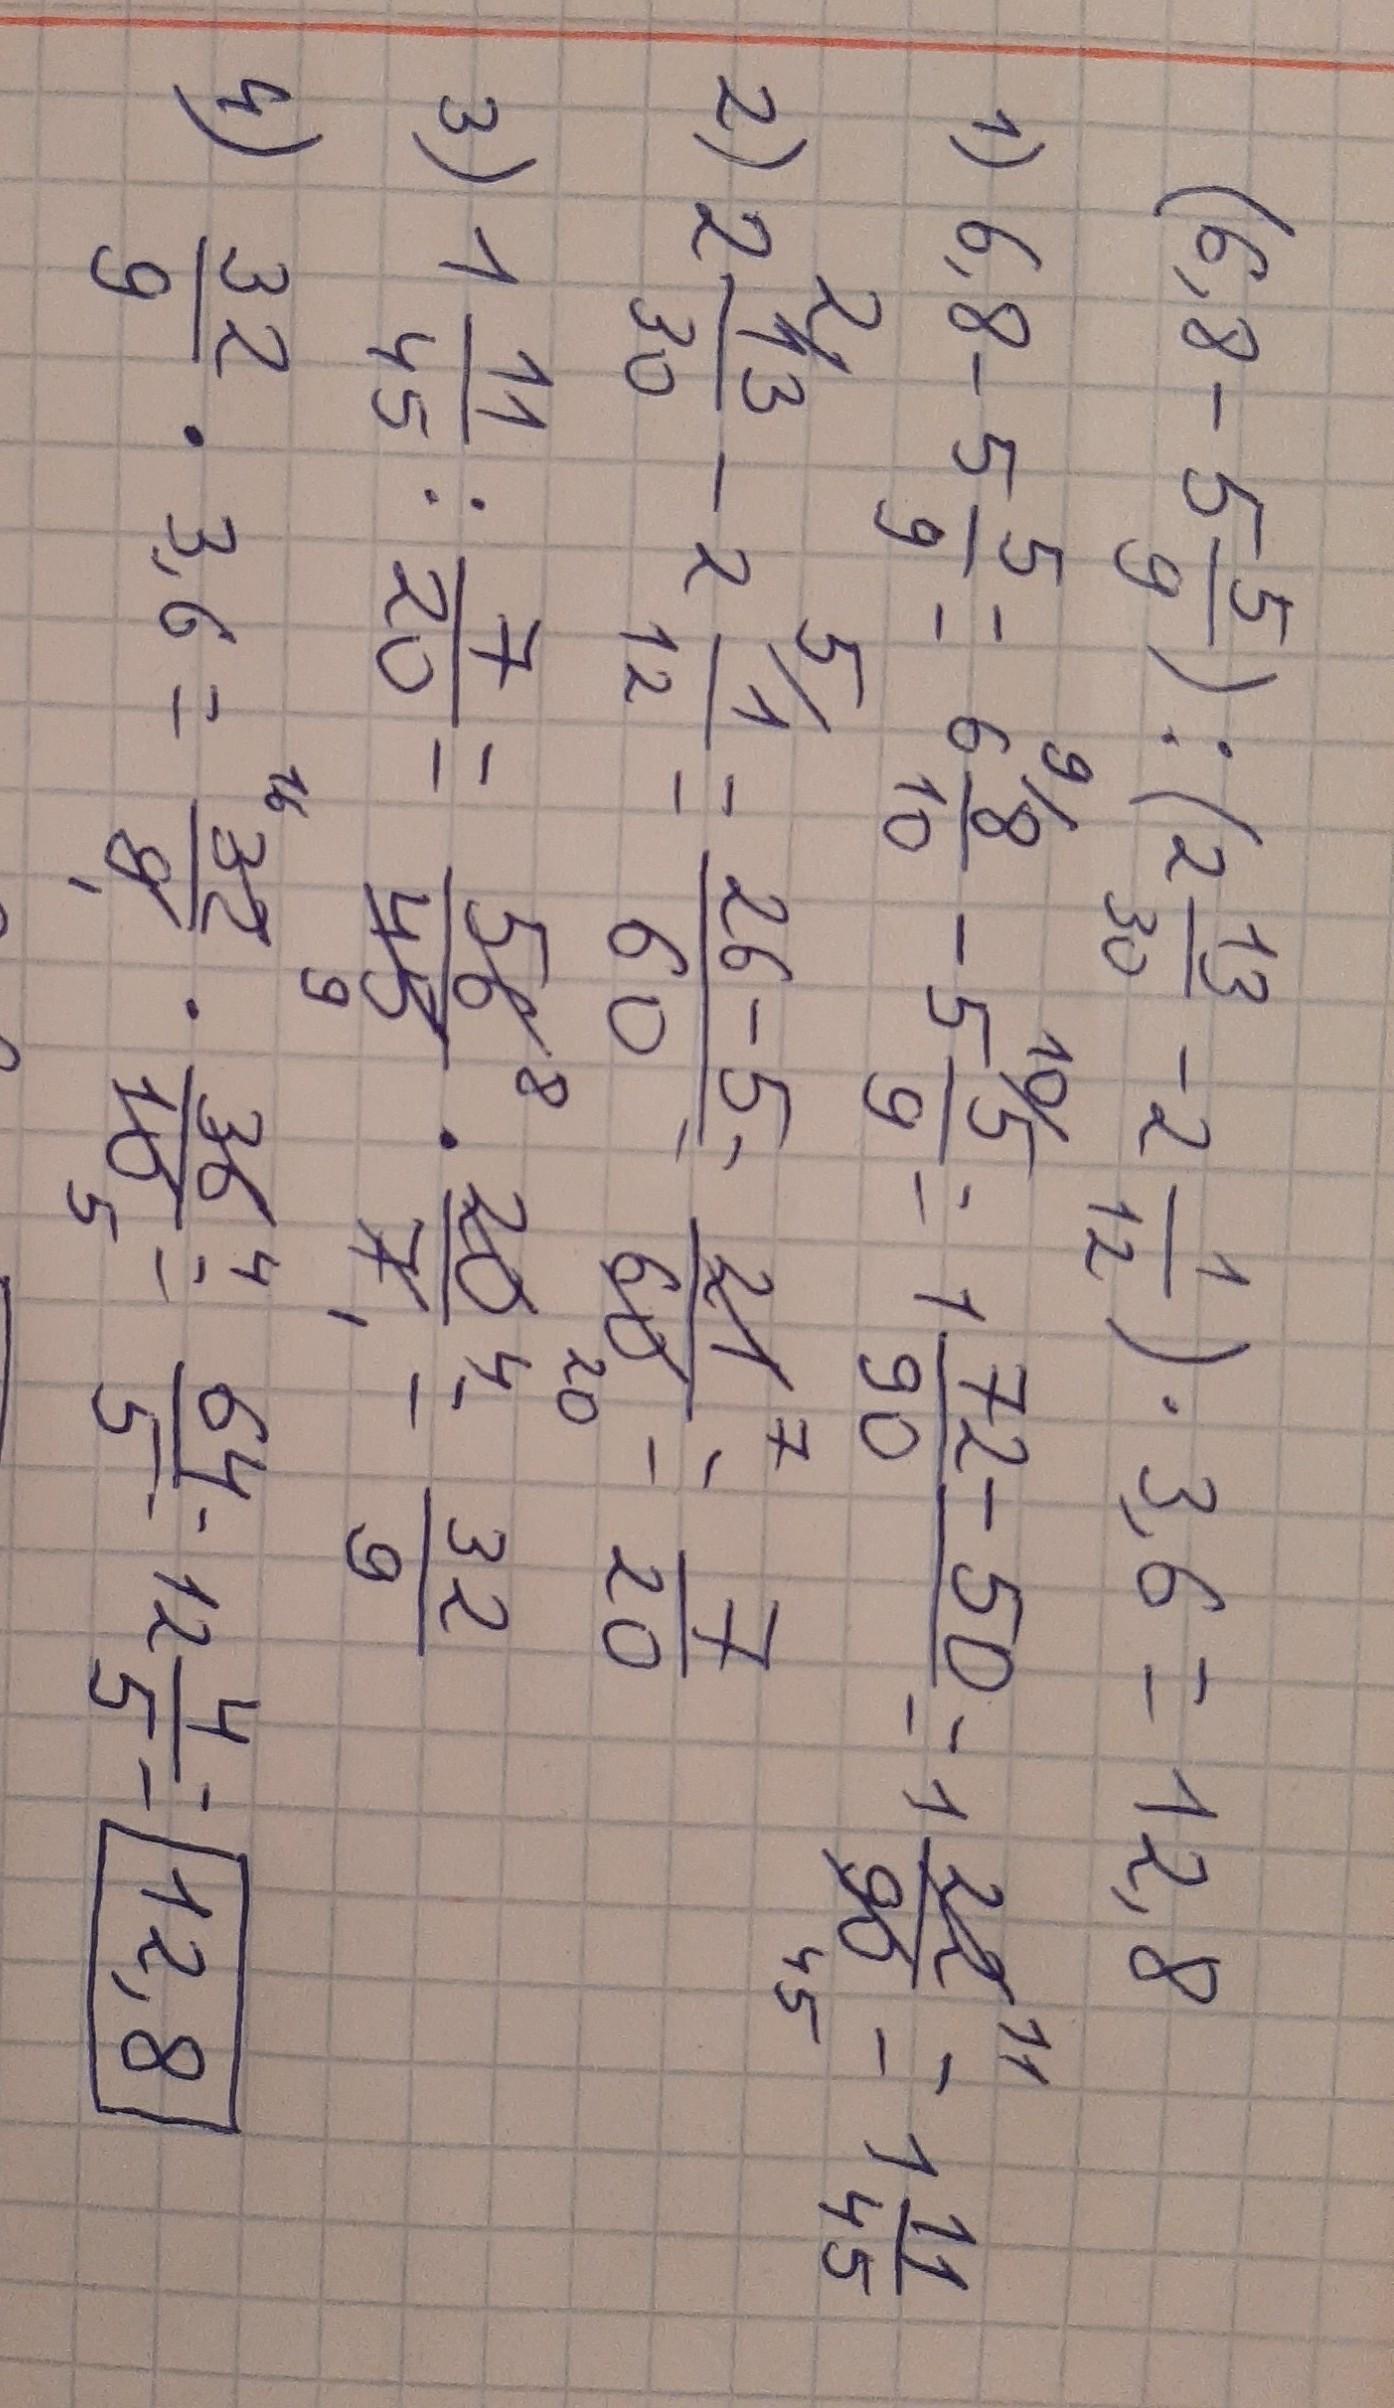 (6,8 - 5 5/9) : (2 13/30 - 2 1/12) · 3,6 = 12,8
1) 6,8 - 5 5/9 = 6 8/10 (9/) - 5 5/9 (10/) = 1 (72-50)/90 = 1 22/90 (11/45) = 1 11/45
2) 2 13/30 (2/) - 2 1/12 (5/) = (26-5)/60 = 21/60 (7/20) = 7/20
3) 1 11/45 : 7/20 = 56/45 (8/9) · 20/7 (4/1) = 32/9
4) 32/9 · 3,6 = 32/9 (16/1) · 36/10 (4/5) = 64/5 = 12 4/5 = 12,8